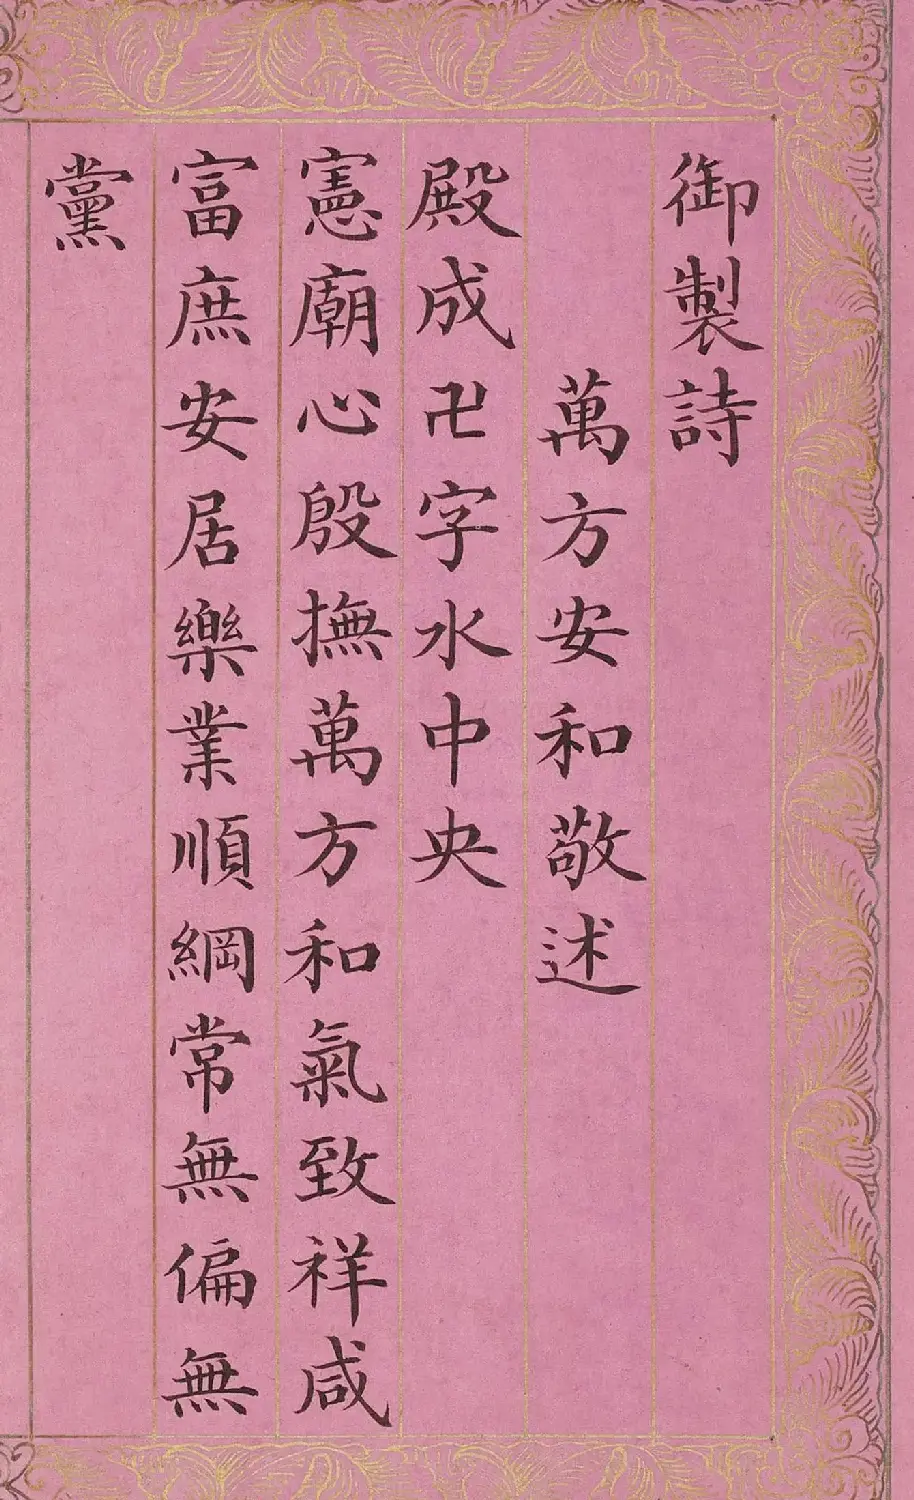 御製詩
萬方安和敬述
殿成卍字水中央
憲廟心殷撫萬方和氣致祥咸
富庶安居樂業順綱常無偏無
黨